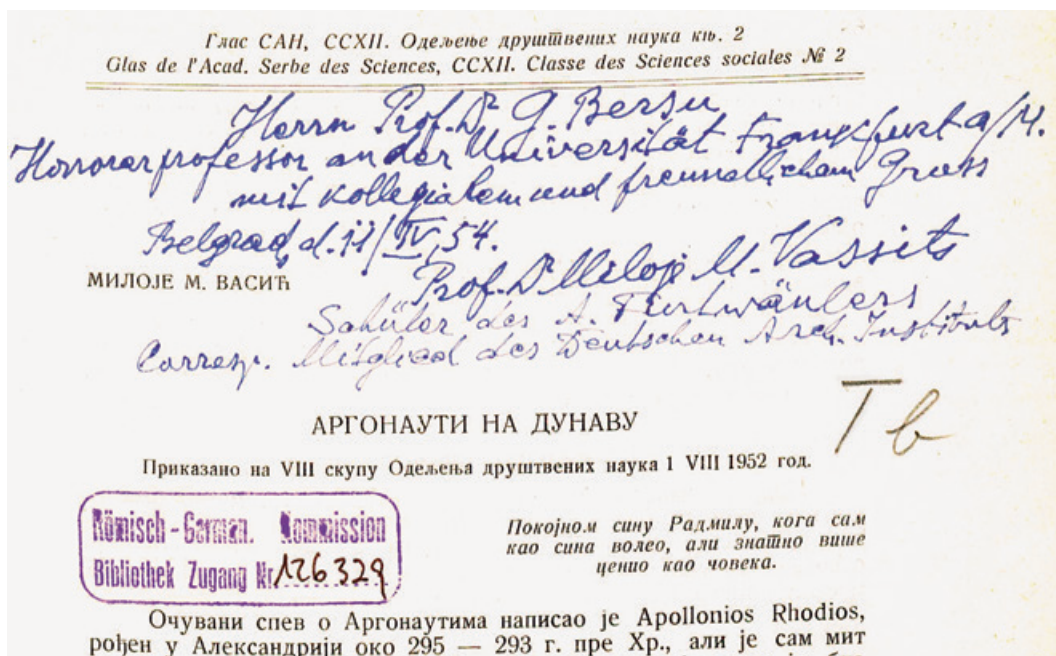 Глас САН, CCXII. Одељење друштвених наука књ. 2
Glas de l'Acad. Serbe des Sciences, CCXII. Classe des Sciences sociales № 2
Herrn Prof. Dr G. Bersu
Honorarprofessor an der Universität Frankfurt a/M.
mit kollegialem und freundlichem Gruss
Belgrad, d. 11/IV, 54.
Prof. Dr Miloje M. Vassits
МИЛОЈЕ М. ВАСИЋ
Schüler des A. Furtwänlers
Corresp. Mitglied des Deutschen Arch. Instituts
АРГОНАУТИ НА ДУНАВУ
T b
Приказано на VIII скупу Одељења друштвених наука 1 VIII 1952 год.
Römisch-German. Kommission
Bibliothek Zugang Nr. 126329
Покојном сину Радмилу, кога сам
као сина волео, али знатно више
ценио као човека.
Очувани спев о Аргонаутима написао је Apollonios Rhodios,
рођен у Александрији око 295 — 293 г. пре Хр., али је сам мит